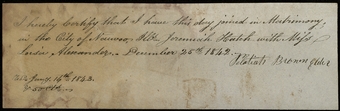 I hereby Certify that I have this day joined in Matrimony,
in the City of Nauvoo, Mr. Jeremiah Hatch with Miss
Louisa Alexander, - December 25th 1842.
Pelatiah Brown Elder
Jany. 14th 1843.